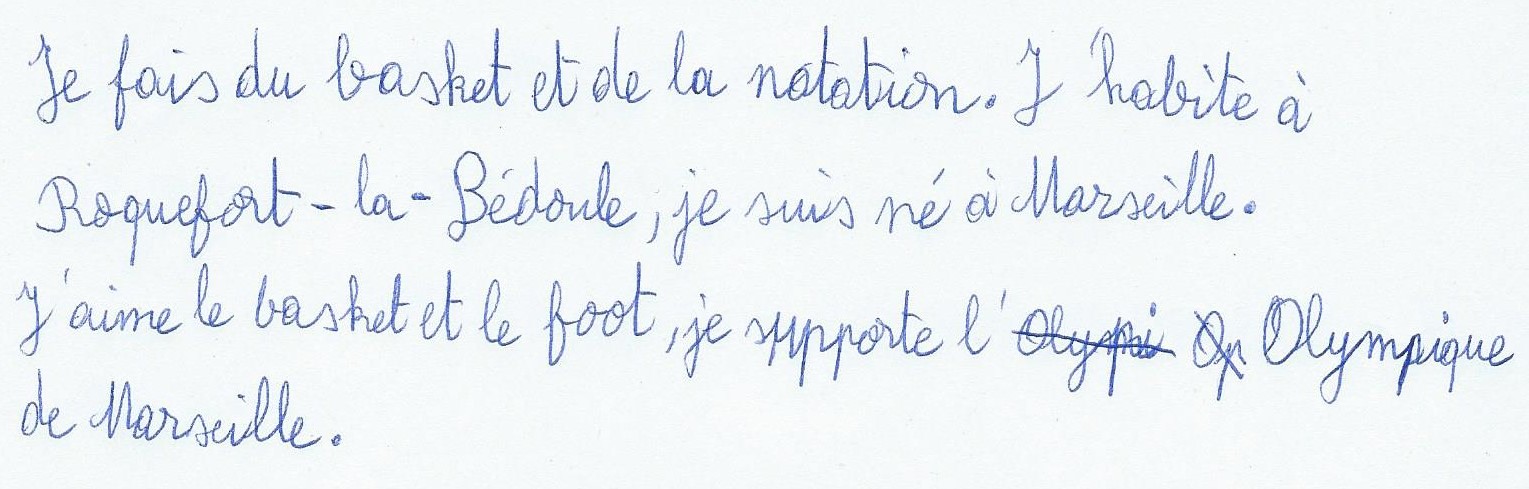 Je fais du basket et de la natation. J'habite à
Roquefort-la-Bédoule, je suis né à Marseille.
J'aime le basket et le foot, je supporte l' Olympique
de Marseille.